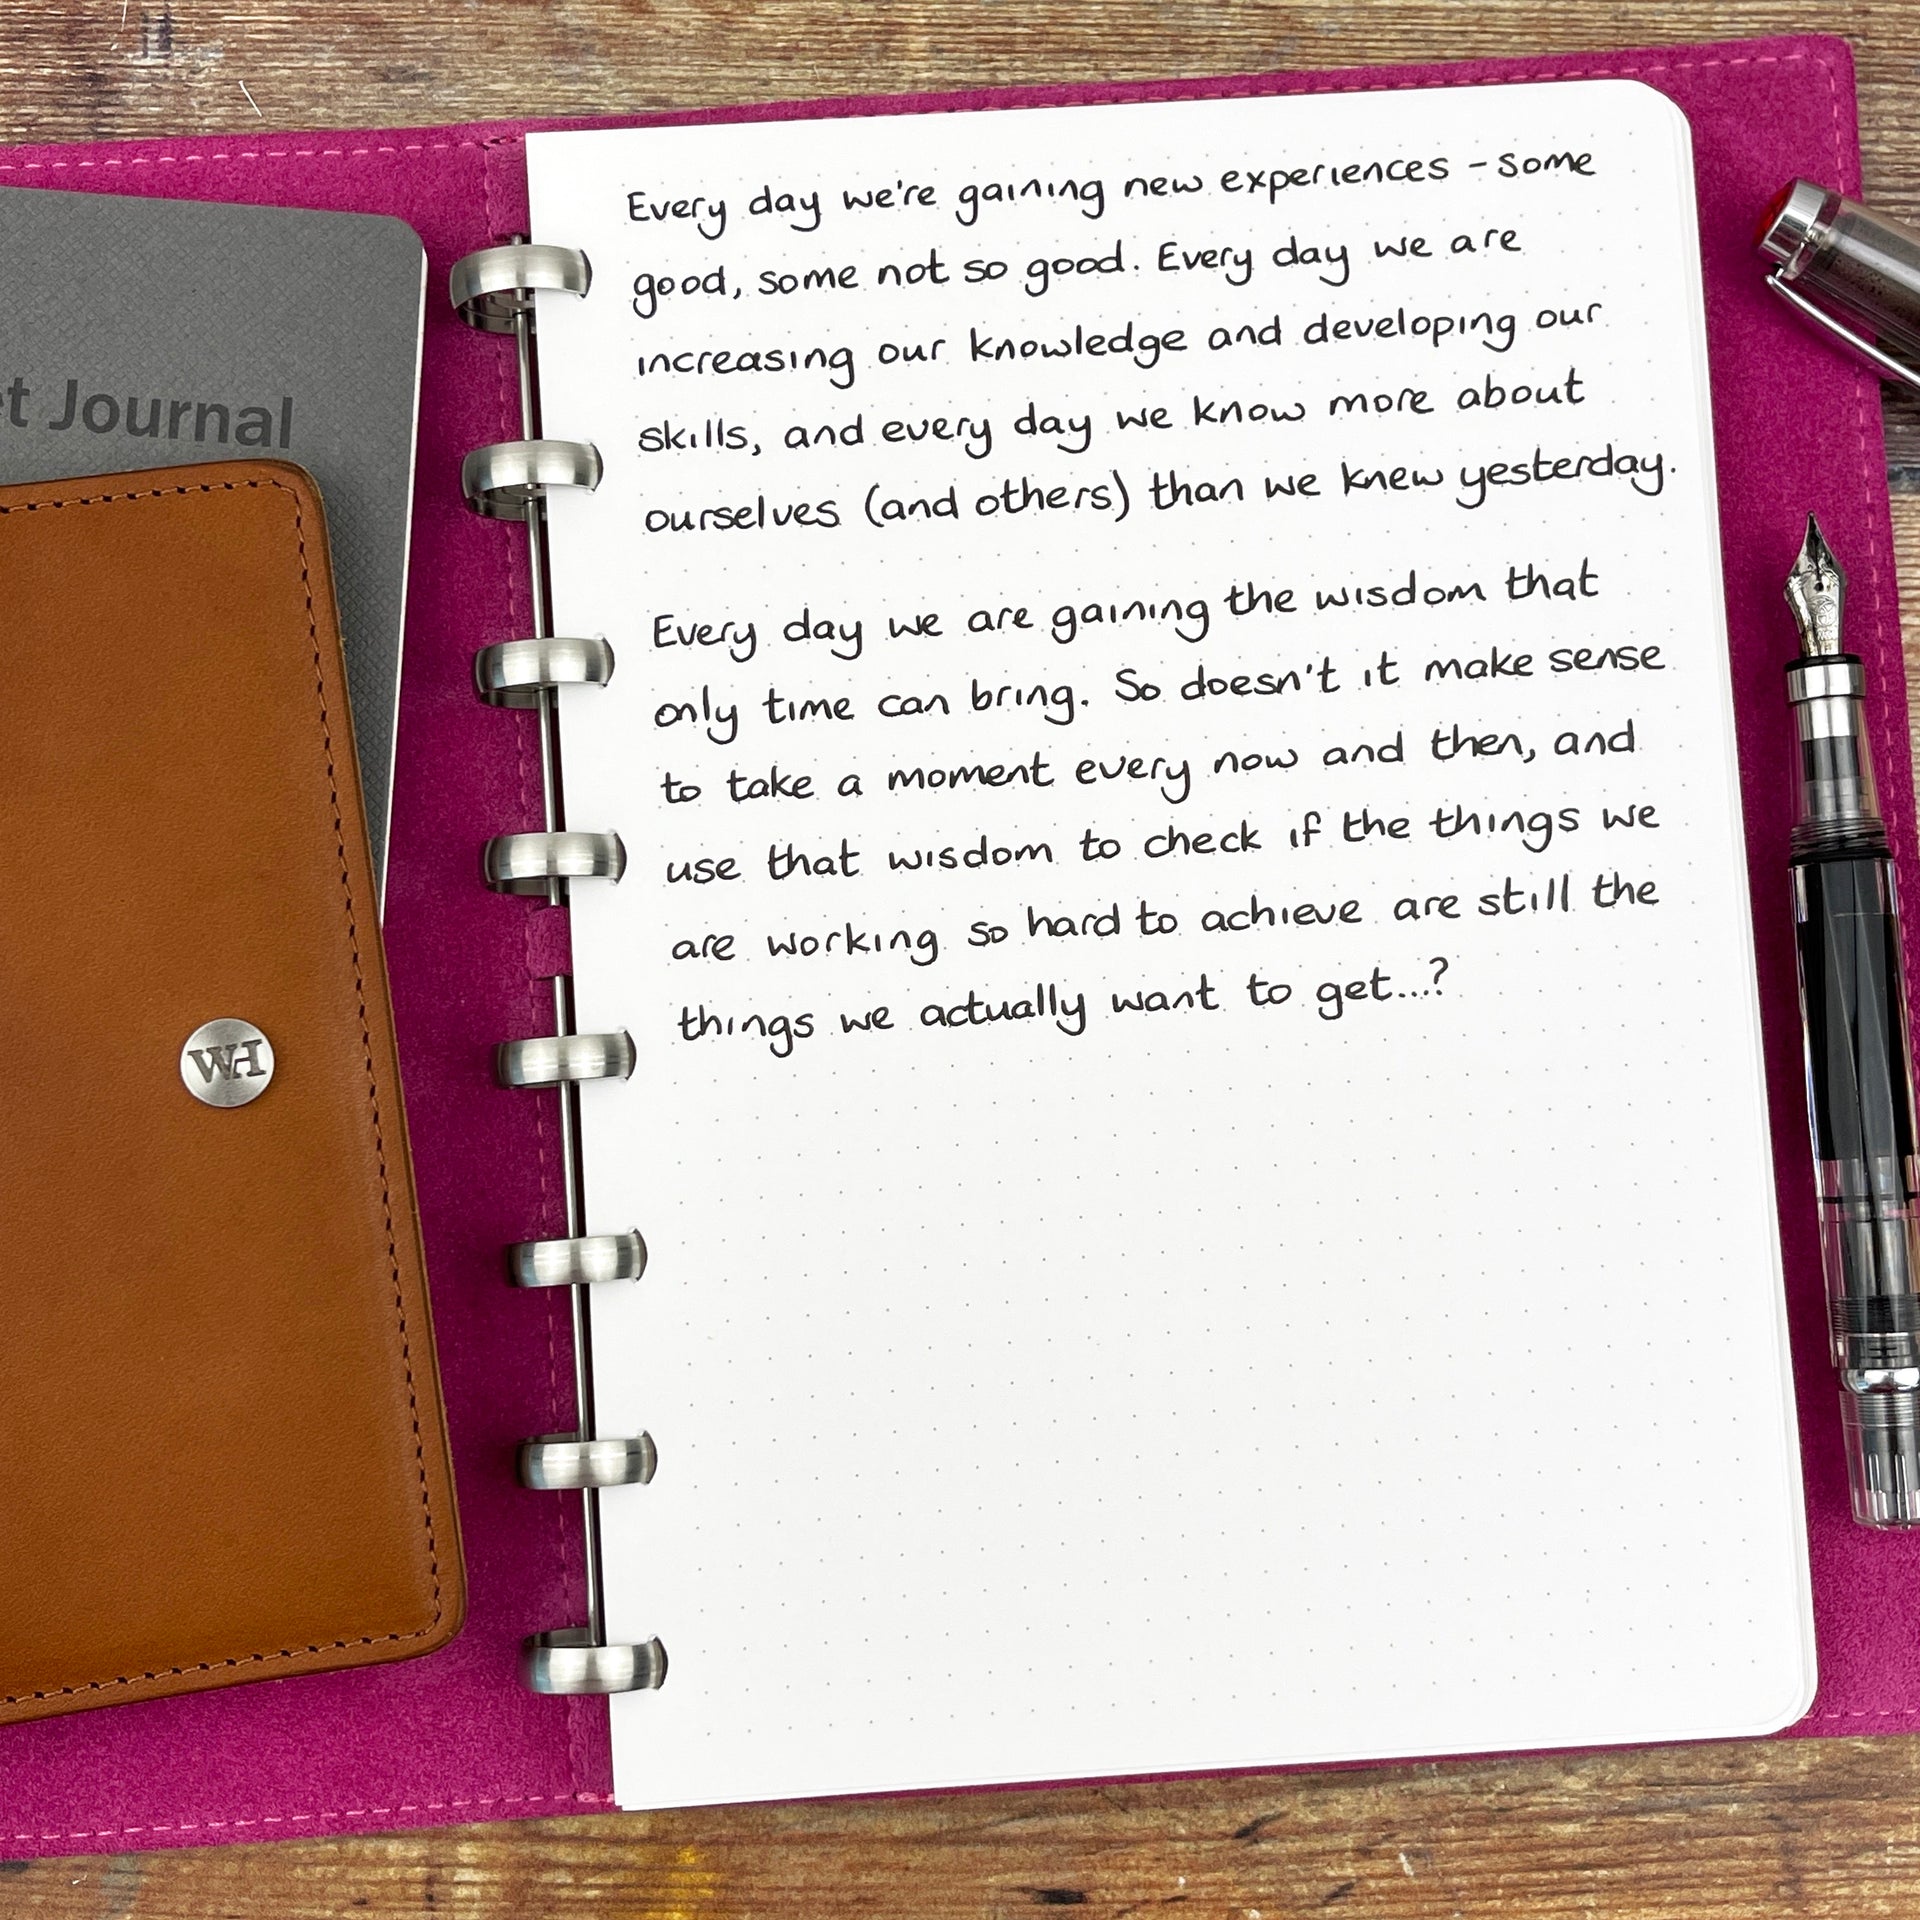 Every day we're gaining new experiences - some
good, some not so good. Every day we are
increasing our knowledge and developing our
skills, and every day we know more about
ourselves (and others) than we knew yesterday.
Every day we are gaining the wisdom that
only time can bring. So doesn't it make sense
to take a moment every now and then, and
use that wisdom to check if the things we
are working so hard to achieve are still the
things we actually want to get...?
et Journal
WH